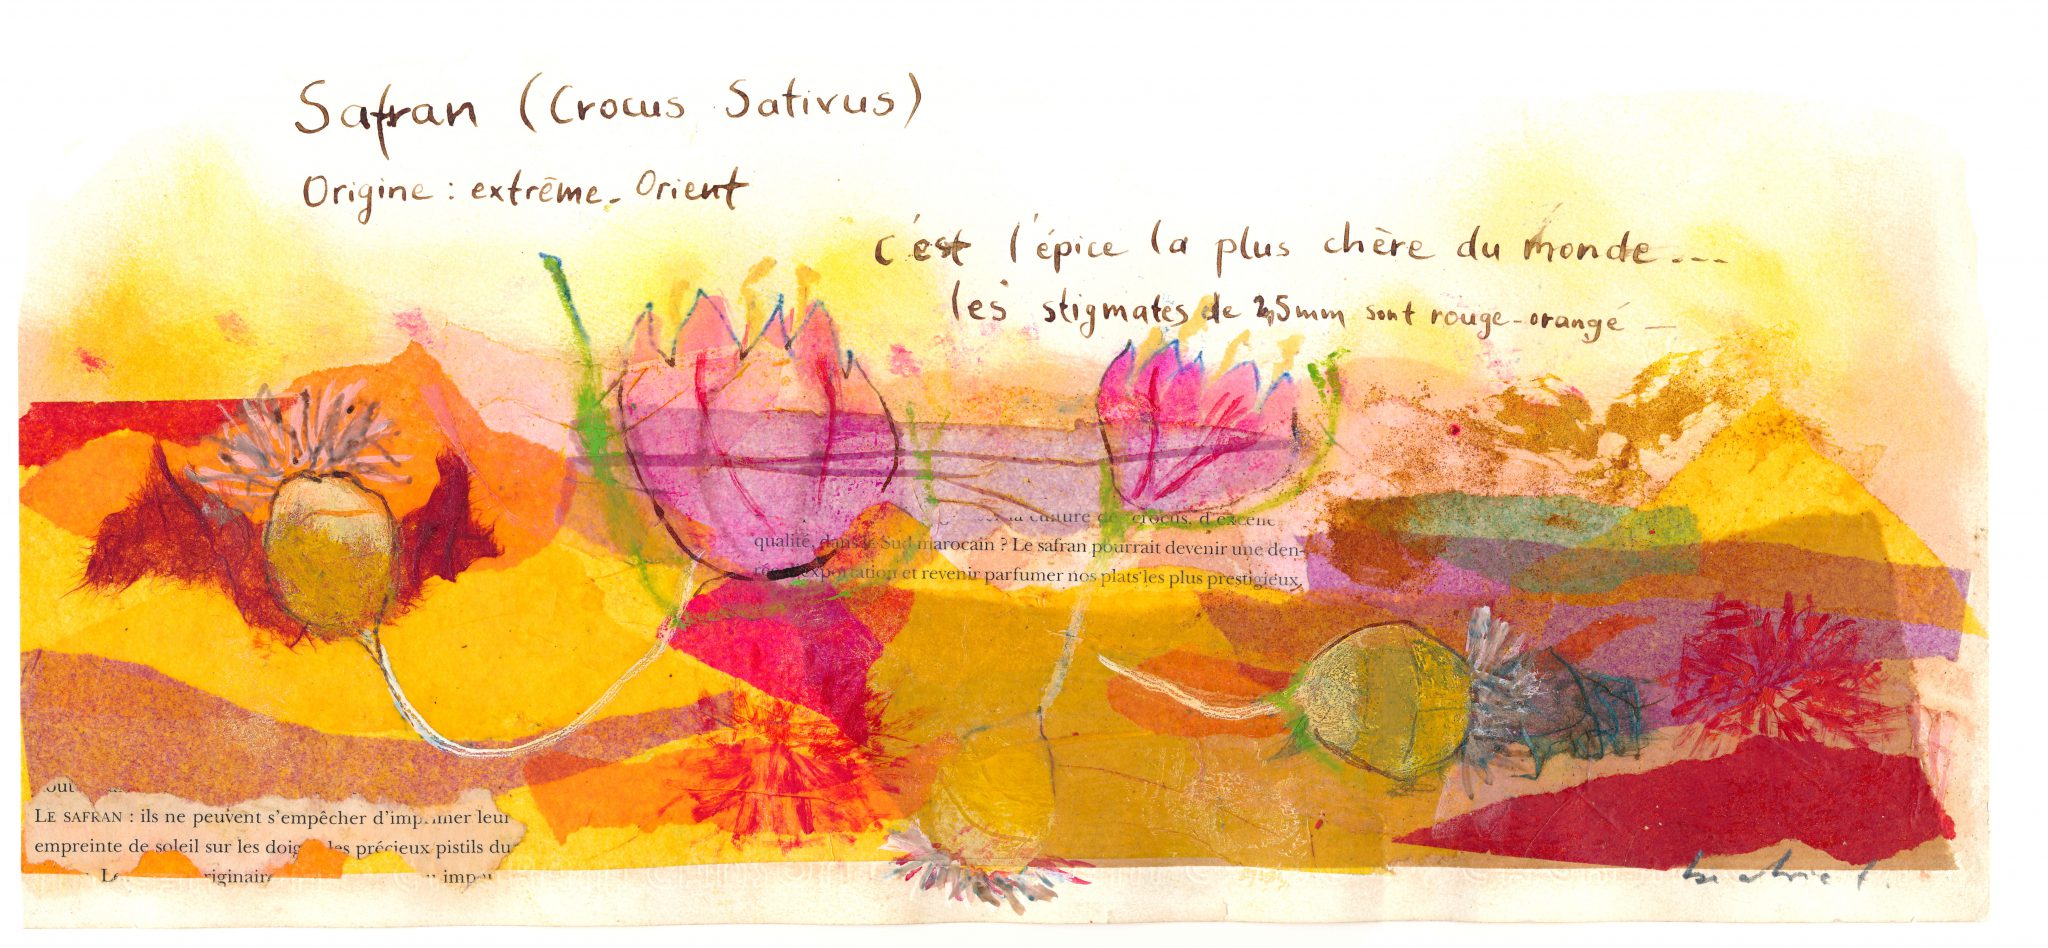 Safran (Crocus Sativus)
Origine : extrême-Orient
c'est l'épice la plus chère du monde...
les stigmates de 2,5mm sont rouge-orangé –
la culture de crocus, d'excelle
qualité, dans le Sud marocain ? Le safran pourrait devenir une den-
exportation et revenir parfumer nos plats les plus prestigieux,
LE SAFRAN : ils ne peuvent s'empêcher d'imprimer leur
empreinte de soleil sur les doig les précieux pistils du